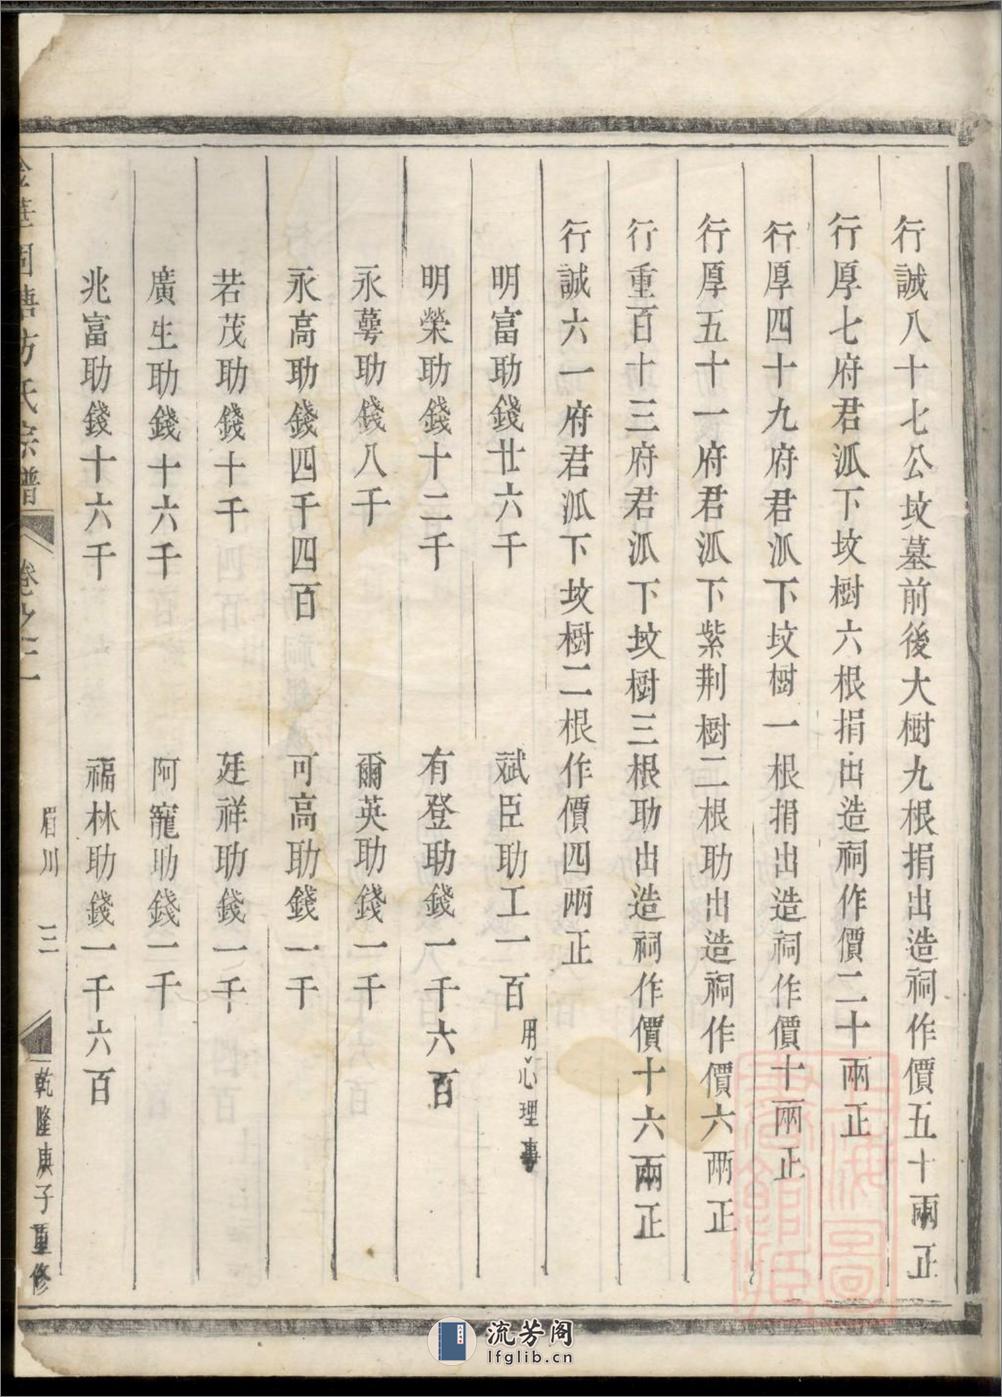 行誠八十七公坟墓前後大樹九根捐出造祠作價五十兩正
行厚七府君派下坟樹六根捐出造祠作價二十兩正
行厚四十九府君派下坟樹一根捐出造祠作價十兩正
行厚五十一府君派下紫荆樹二根助出造祠作價六兩正
行重百十三府君派下坟樹三根助出造祠作價十六兩正
行誠六一府君派下坟樹二根作價四兩正
明富助錢廿六千 斌臣助工一百用心理事
明榮助錢十二千 有登助錢一千六百
永蕚助錢八千 爾英助錢一千
永高助錢四千四百 可高助錢一千
若茂助錢十千 廷祥助錢一千
廣生助錢十六千 阿寵助錢一千
兆富助錢十六千 福林助錢一千六百
塘方氏宗譜 卷之二 眉川 三 乾隆庚子重修
流芳阁
lfglib.cn